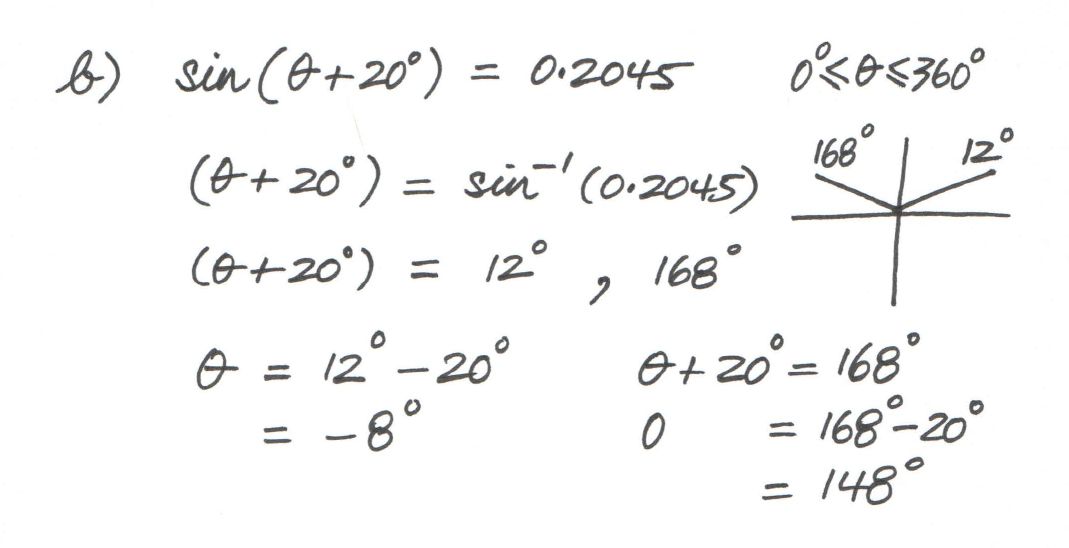 b) sin(θ+20°) = 0.2045 0°≤θ≤360°
(θ+20°) = sin⁻¹(0.2045) 168° 12°
(θ+20°) = 12° , 168°
θ = 12°-20° θ+20° = 168°
= -8° 0 = 168°-20°
= 148°